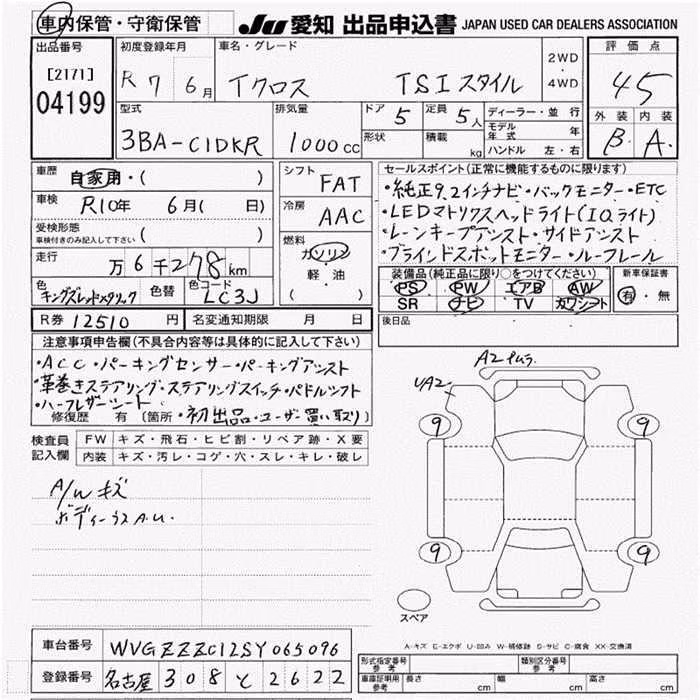 車内保管・守衛保管 JU 愛知 出品申込書 JAPAN USED CAR DEALERS ASSOCIATION
出品番号 初度登録年月 車名・グレード 2WD・4WD 評価点
[2171] R 7年 6月 Tクロス TSI スタイル 4.5
04199
型式 排気量 ドア 5 定員 5人 ディーラー・並行 外装 内装
3BA-C1DKR 1000cc 形状 積載 kg モデル年式 年 B A
ハンドル 左・右
車歴 自家用・( ) シフト FAT セールスポイント(正常に機能するものに限ります)
車検 R10年 6月( 日) 冷房 AAC ・純正9.2インチナビ・バックモニター・ETC
・LEDマトリクスヘッドライト(I.Q.ライト)
受検形態 車検付きのみ記入して下さい ( ) 燃料 ガソリン 軽・油 ( ) ・レーンキープアシスト・サイドアシスト
・ブラインドスポットモニター・ルーフレール
走行 万 6千278km 装備品(純正品に限り○をつけてください) 新車保証書
色 キングズレッドメタリック 色替 色コード LC3J PS PW エアB AW 有・無
SR ナビ TV カワシート
R券 12510円 名変通知期限 月 日 後日品
注意事項申告欄(不具合内容等は具体的に記入して下さい)
・ACC・パーキングセンサー・パーキングアシスト
・革巻きステアリング・ステアリングスイッチ・パドルシフト
・ハーフレザーシート
修復歴 有 [箇所 ・初出品・ユーザー買い取り)
検査員記入欄 FW キズ・飛石・ヒビ割・リペア跡・X要
内装 キズ・汚レ・コゲ・穴・スレ・キレ・破レ
A/W キズ
A2
UA2
9 9
9 9
スペア
A-キズ E-エクボ U-凹み W-補修跡 S-サビ C-腐食 XX-交換済
車台番号 WVGZZZC12SY065096
登録番号 名古屋 308 と 2622
形式指定番号 参考 類別区分番号 参考
車庫証明用 参考 長さ cm 幅 cm 高さ cm